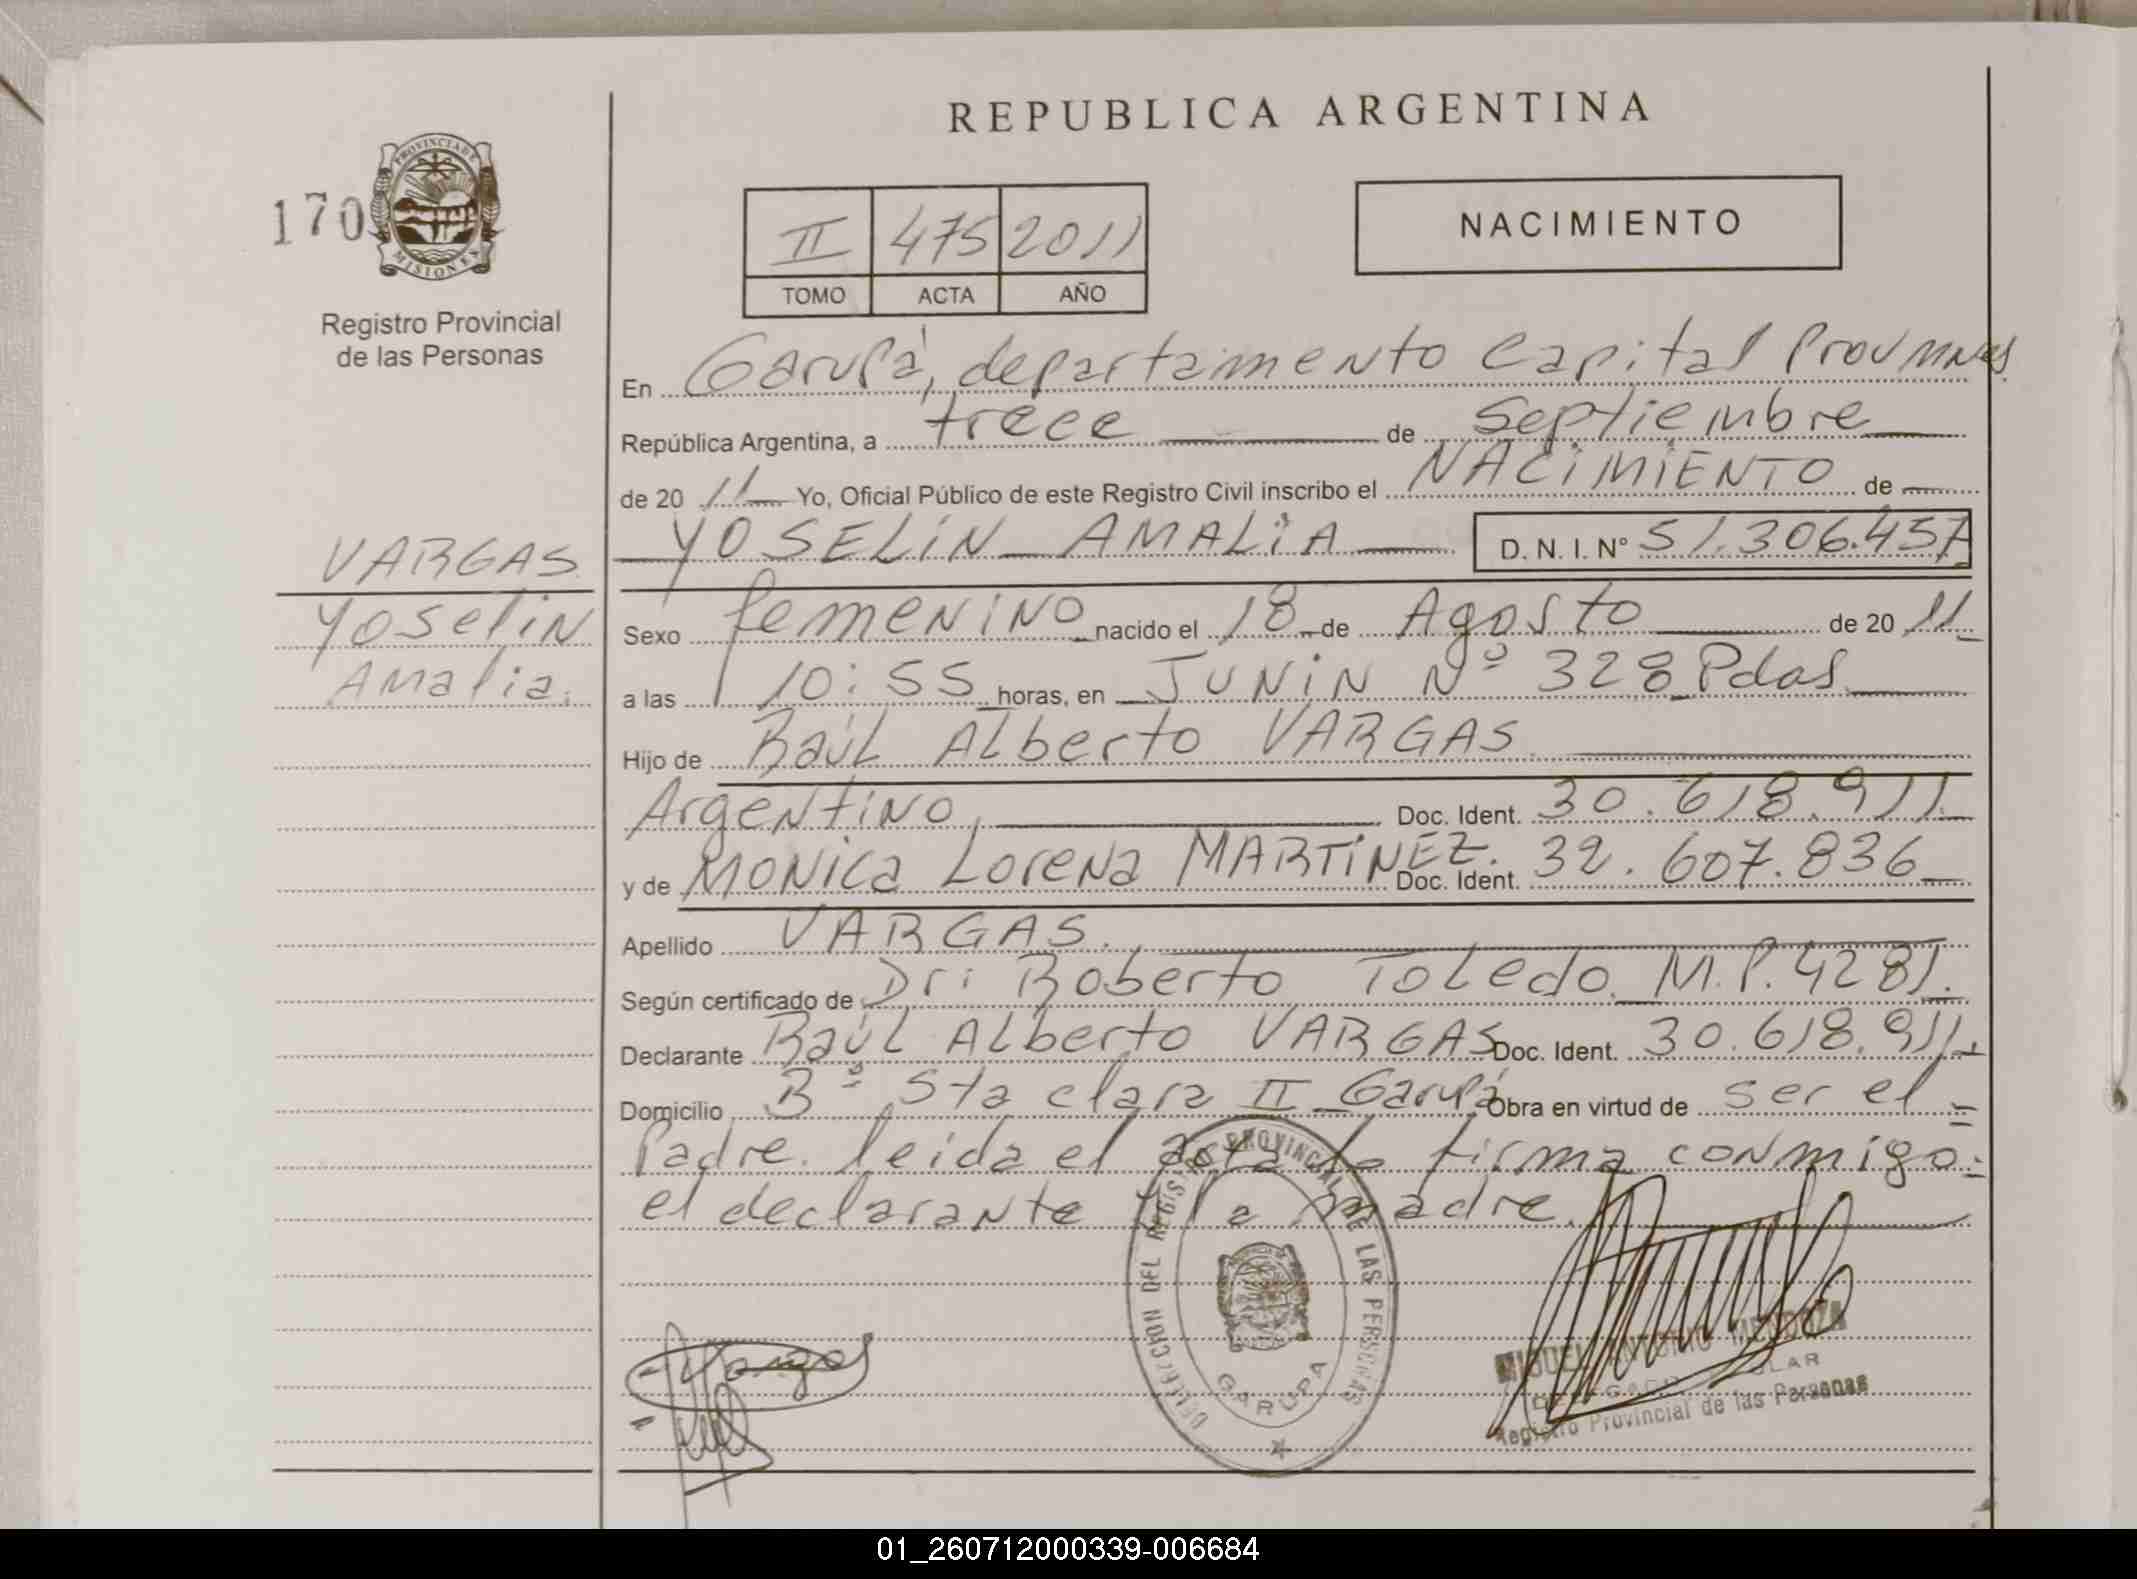 REPUBLICA ARGENTINA
170
PROVINCIA DE
MISIONES
Registro Provincial
de las Personas
II 475 2011
TOMO ACTA AÑO
NACIMIENTO
En Garupá, departamento Capital Prov Mnes
República Argentina, a trece de Septiembre
de 20 11 Yo, Oficial Público de este Registro Civil inscribo el NACIMIENTO de
YOSELIN AMALIA D. N. I. N° 51.306.457
VARGAS
Yoselin
Amalia.
Sexo femenino nacido el 18 de Agosto de 20 11
a las 10:55 horas, en JUNIN Nº 328 Pdas
Hijo de Raúl Alberto VARGAS
Argentino, Doc. Ident. 30.618.911
y de Monica Lorena MARTINEZ. Doc. Ident. 32.607.836
Apellido VARGAS.
Según certificado de Dr: Roberto Toledo. M.P. 4281.
Declarante Raúl Alberto VARGAS Doc. Ident. 30.618.911
Domicilio Bº Sta clara II Garupá Obra en virtud de ser el
Padre. leida el acta la firma conmigo
el declarante y la madre.
DELEGACION DEL REGISTRO PROVINCIAL DE LAS PERSONAS
GARUPA
Vargas
MIGUEL ANTONIO MENDOZA
Registro Provincial de las Personas
01_260712000339-006684